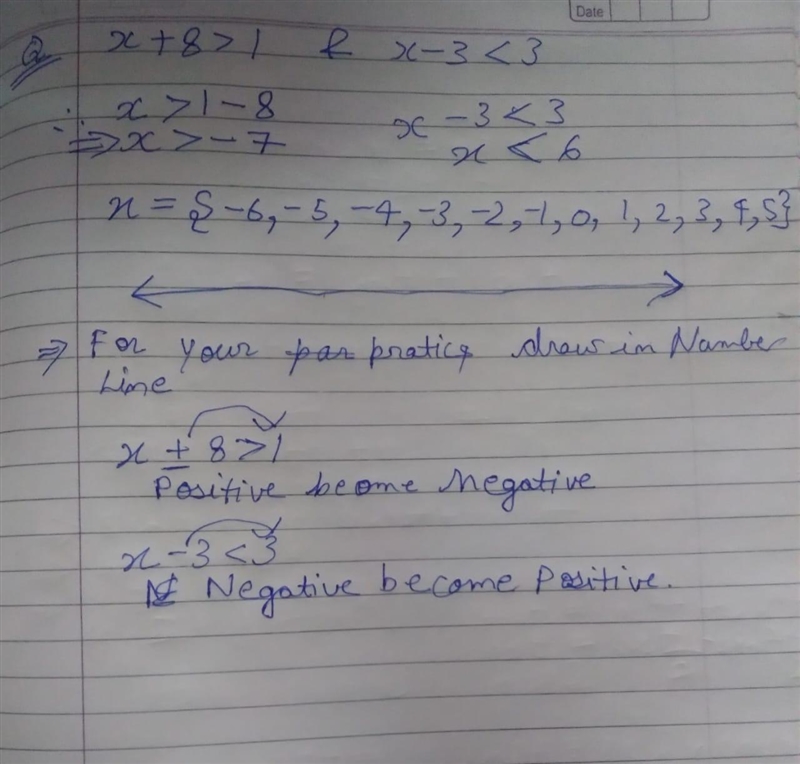 Date
Q x + 8 > 1 & x - 3 < 3
∴ x > 1 - 8 x - 3 < 3
⇒ x > - 7 x < 6
x = {-6, -5, -4, -3, -2, -1, 0, 1, 2, 3, 4, 5}
⇒ For your pratice draw in Number
Line
x + 8 > 1
Positive beome Negative
x - 3 < 3
Negative become Positive.